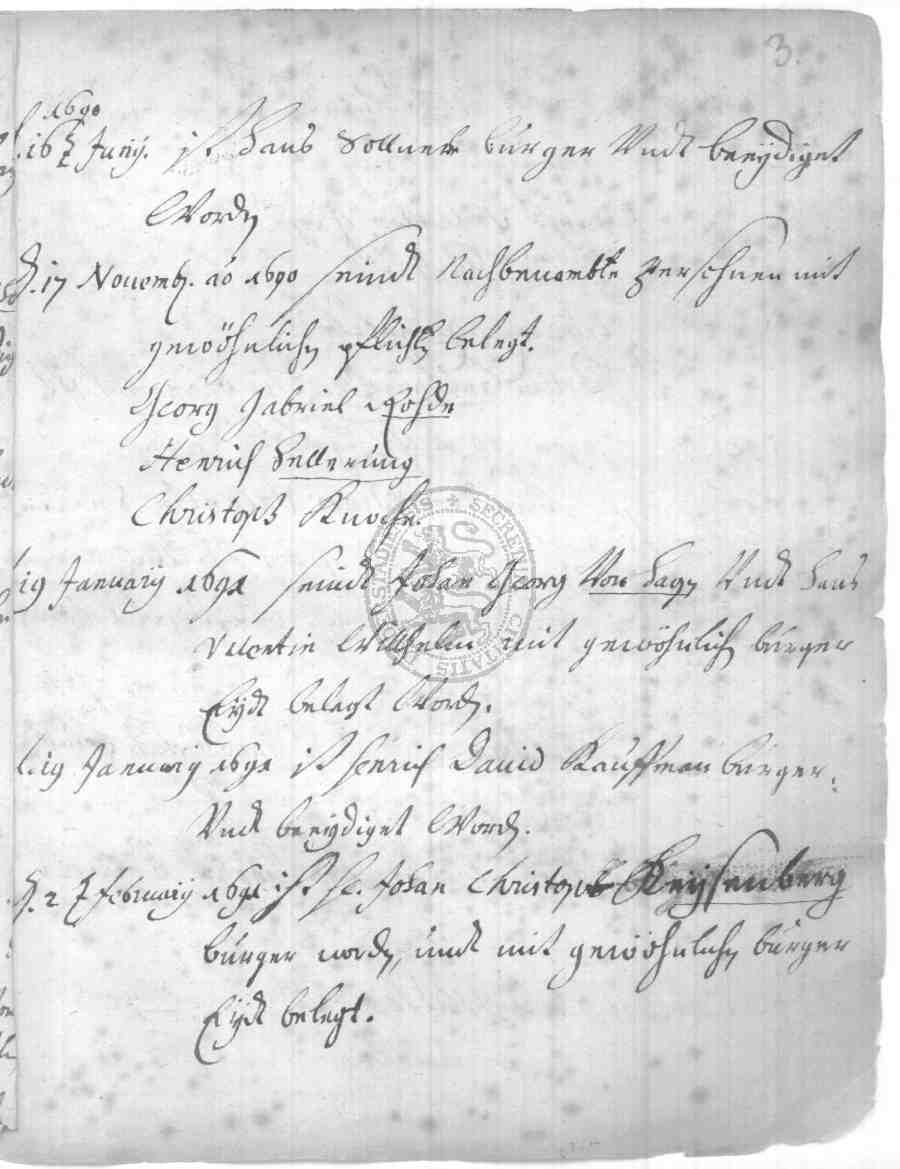 3.
1690
16 Junij. ist Hans Sollner bürger Undt beeydiget
Worden
D. 17 Novemb. ao 1690 seindt Nachbenambte Persohnen mit
gewöhnlichen pflichten belegt.
Georg Gabriel Rohde
Henrich Hellerung
Christoph Knoche.
19 Januarij 1691 seindt Johan Georg Von Hagen Undt Hans
Valentin Willhelm mit gewöhnlich bürger
Eydt belegt Worden.
19 Januarij 1691 ist Henrich David Kauffman bürger.
Undt beeydiget Worden.
D. 2 februarij 1691 ist H. Johan Christoph Keysenberg
bürger worden, undt mit gewöhnlichen bürger
Eydt belegt.
SECRETUM CIVITATIS